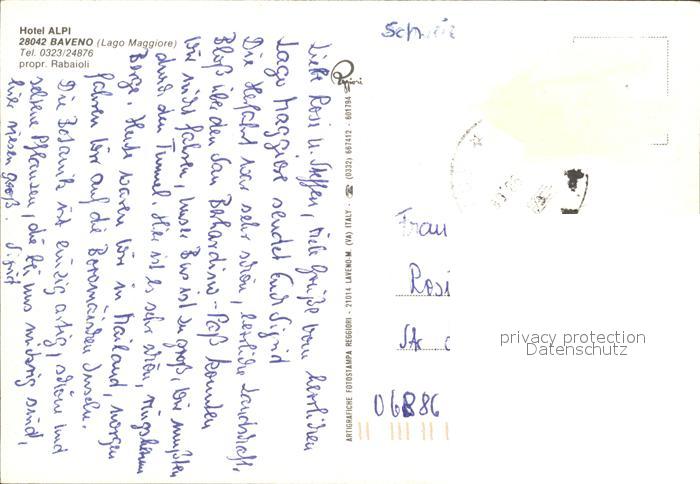 Hotel ALPI
28042 BAVENO (Lago Maggiore)
Tel. 0323/24876
propr. Rabaioli
Liebe Rosi u. Steffen, viele Grüße vom herrlichen
Lago Maggiore sendet Euch Sigrid
Die Herfahrt war sehr schön, herrliche Landschaft,
Bloß über den San Bernardino-Paß konnten
wir nicht fahren, unser Bus ist zu groß, wir mußten
durch den Tunnel. Hier ist es sehr schön, ringsherum
Berge. Heute waren wir in Mailand, morgen
fahren wir auf die Borromäischen Inseln.
Die Botanik ist einzigartig, schöne und
seltene Pflanzen, die bei uns niedrig sind,
hier riesen groß. Sigrid
ARTIGRAFICHE FOTOSTAMPA REGGIORI - 21014 LAVENO-M. (VA) ITALY - ☎ (0332) 667412 - 601794
Reggiori
Frau
Rosi
06886
privacy protection
Datenschutz